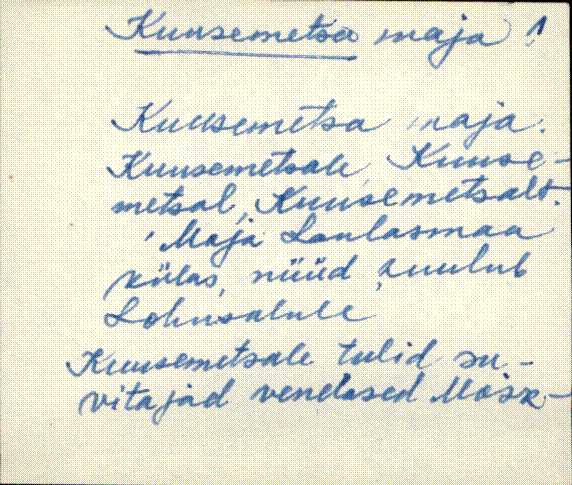 Kuusemetsa maja 1
Kuusemetsa maja.
Kuusemetsale, Kuuse-
metsal, Kuusemetsalt.
Maja Laulasmaa
külas, nüüd kuulub
Lohusalule
Kuusemetsale tulid su-
vitajad venelased Mosk-